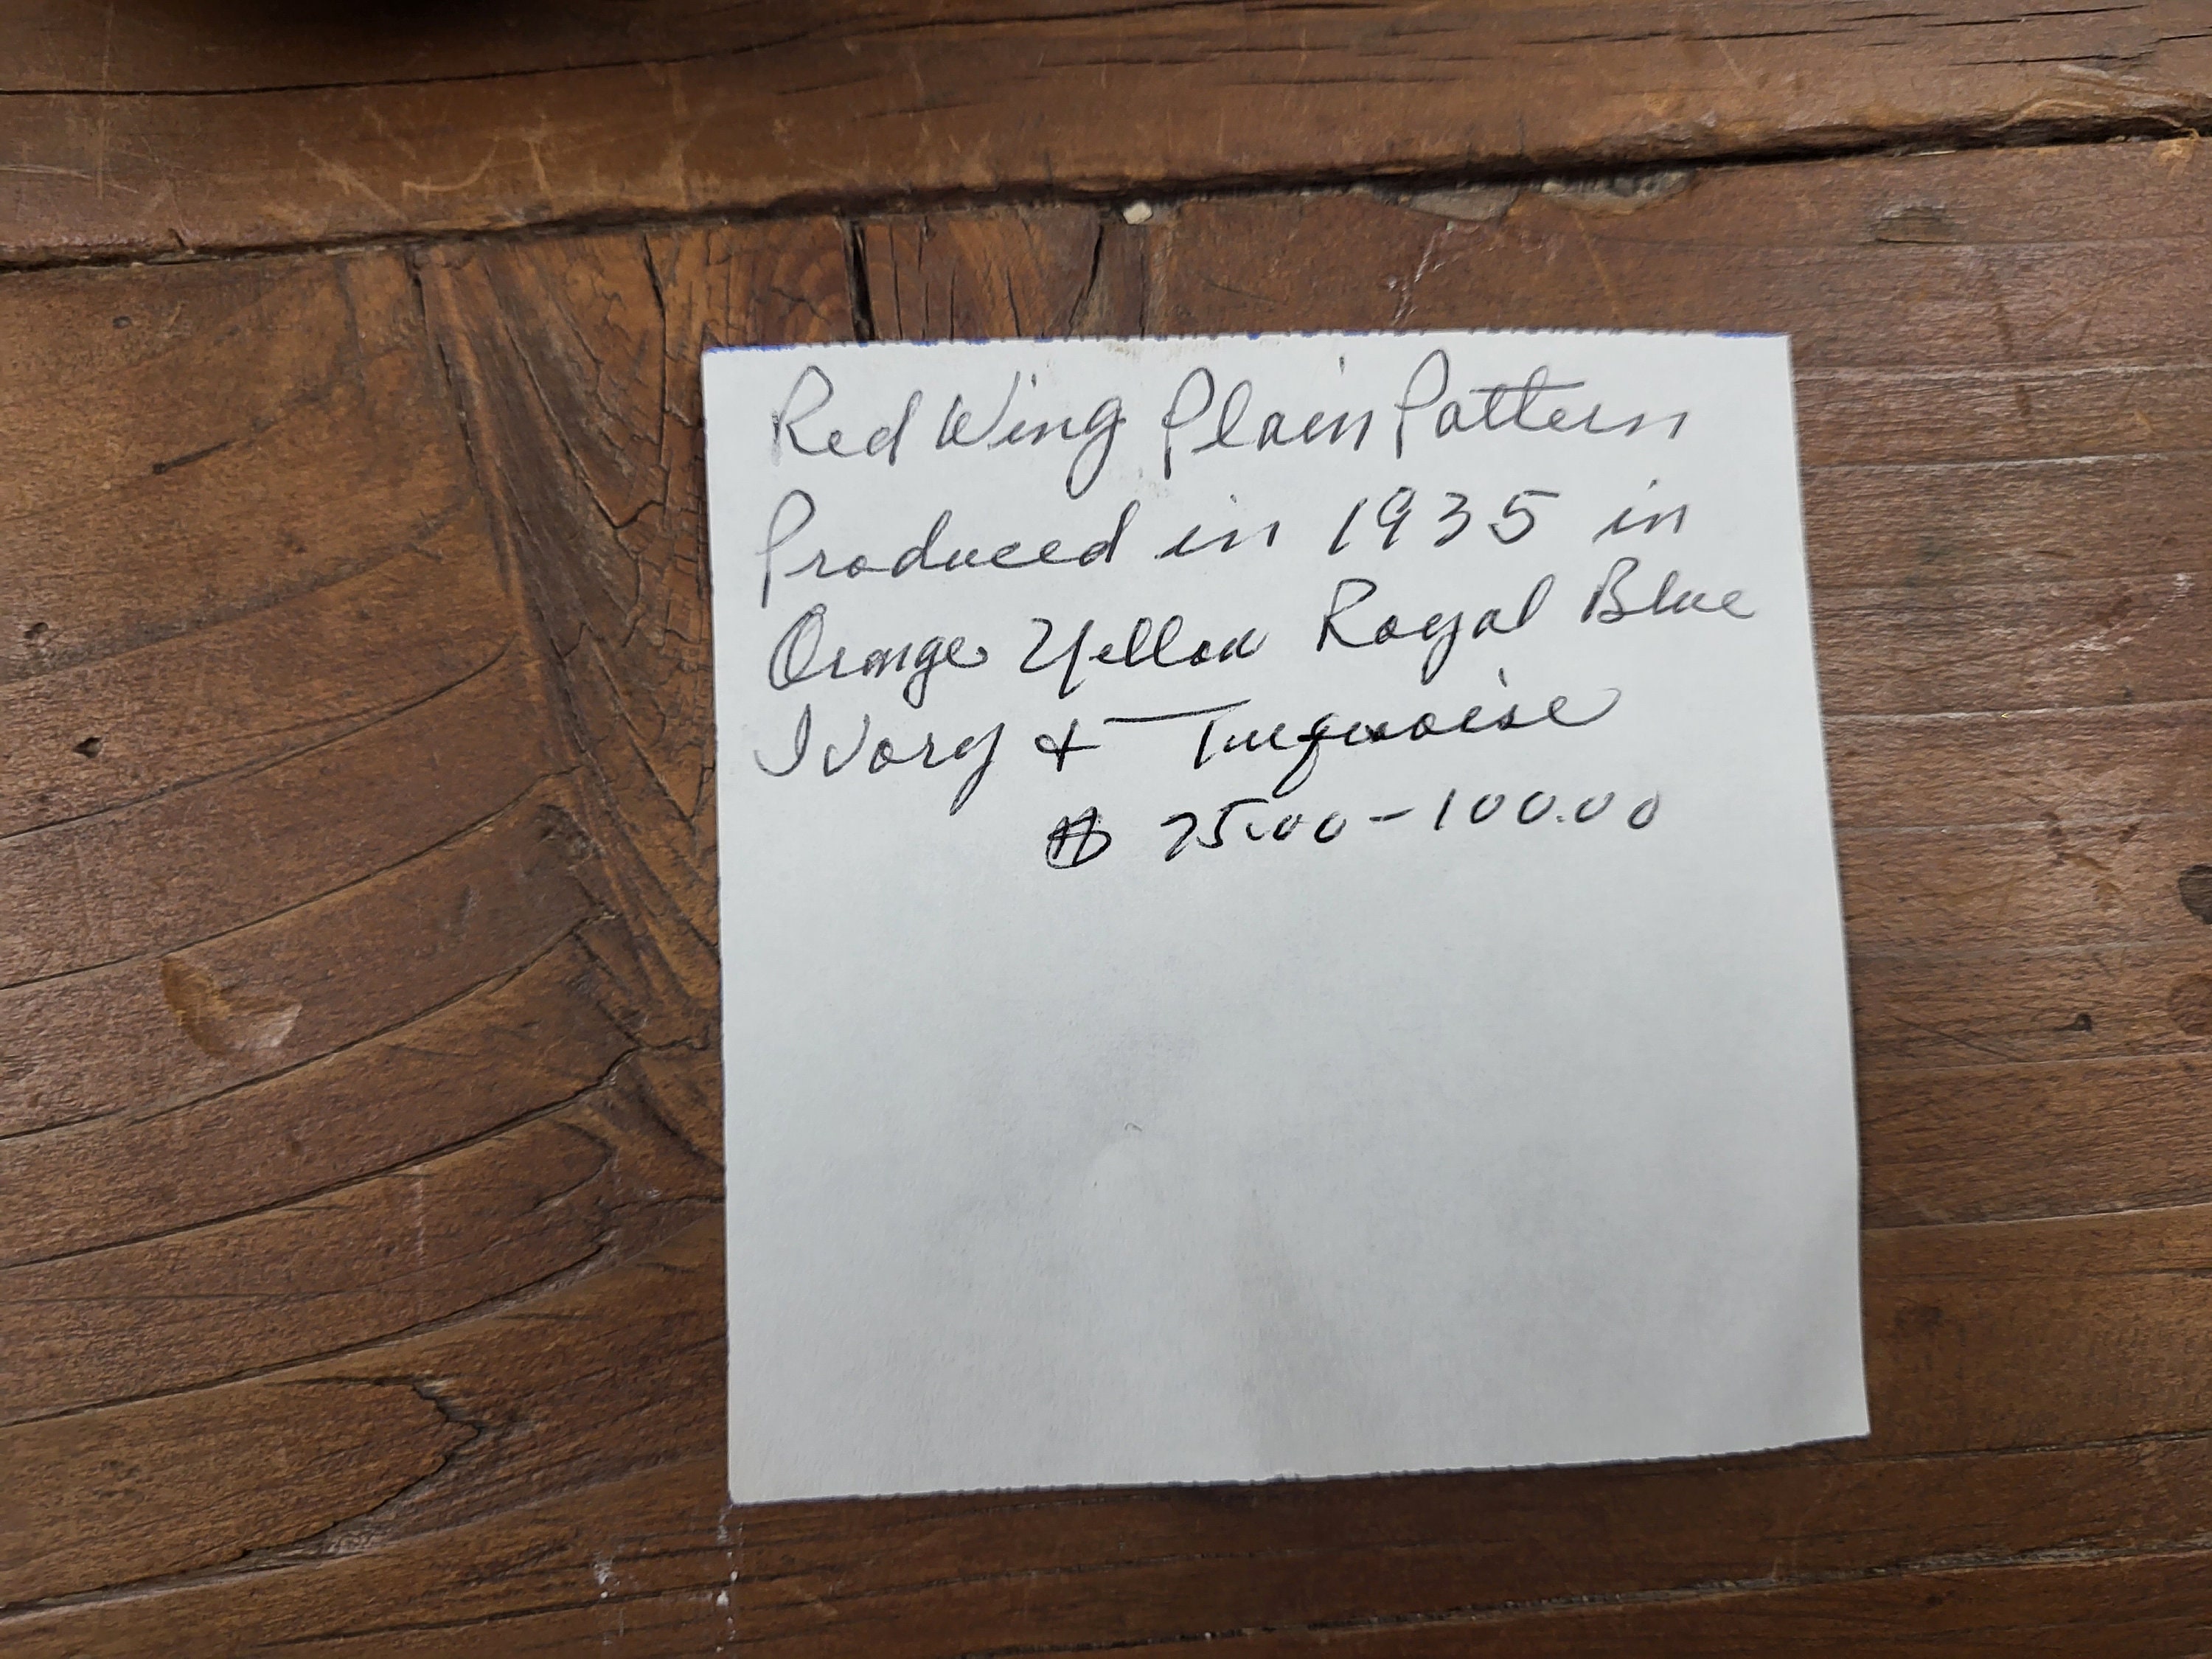 Red Wing Plain Pattern
Produced in 1935 in
Orange Yellow Royal Blue
Ivory & Turquoise
$ 75.00-100.00